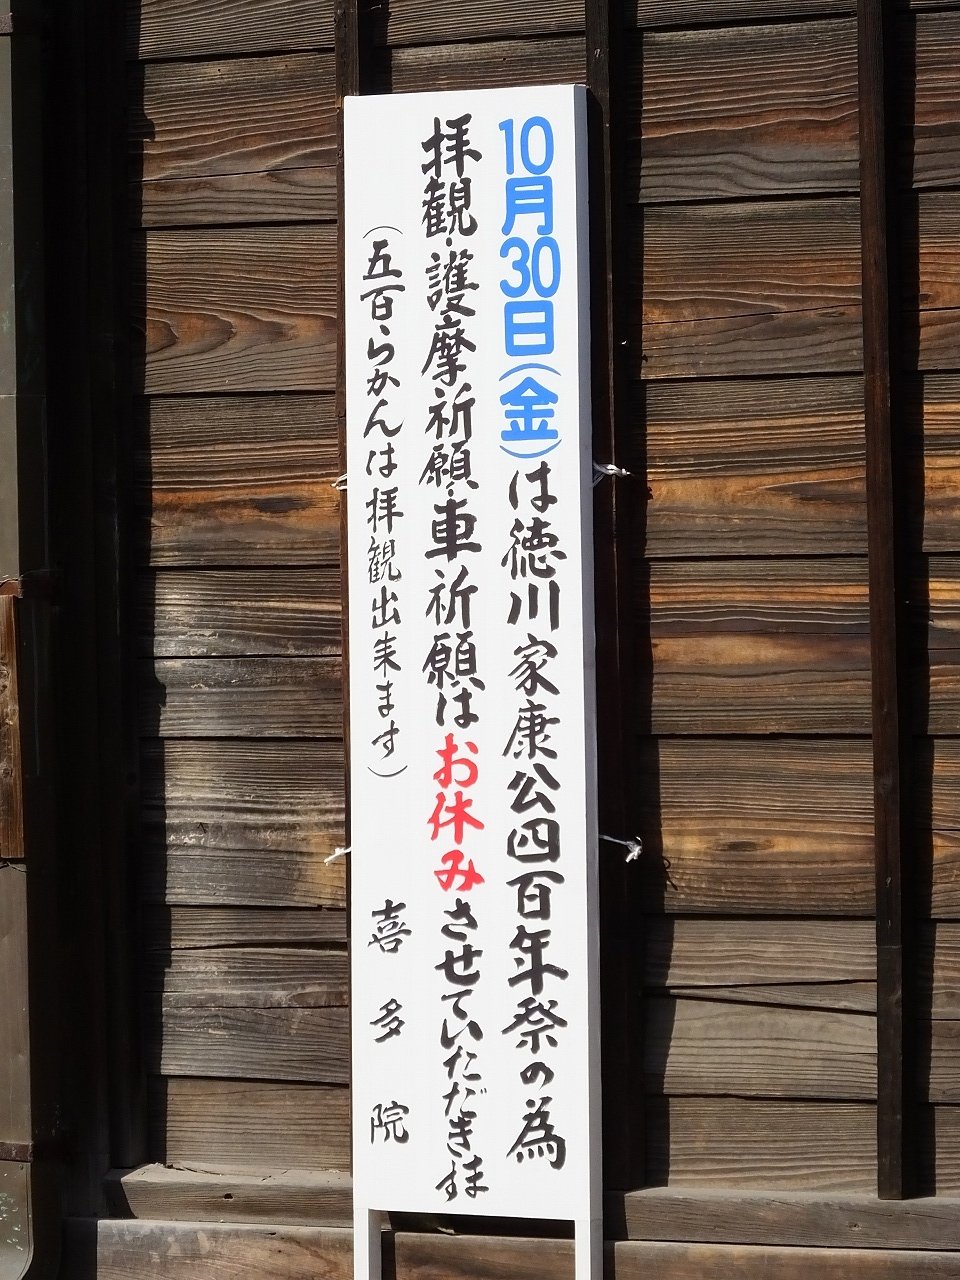 10月30日(金)は徳川家康公四百年祭の為
拝観・護摩祈願・車祈願はお休みさせていただきます
(五百らかんは拝観出来ます)
喜多院